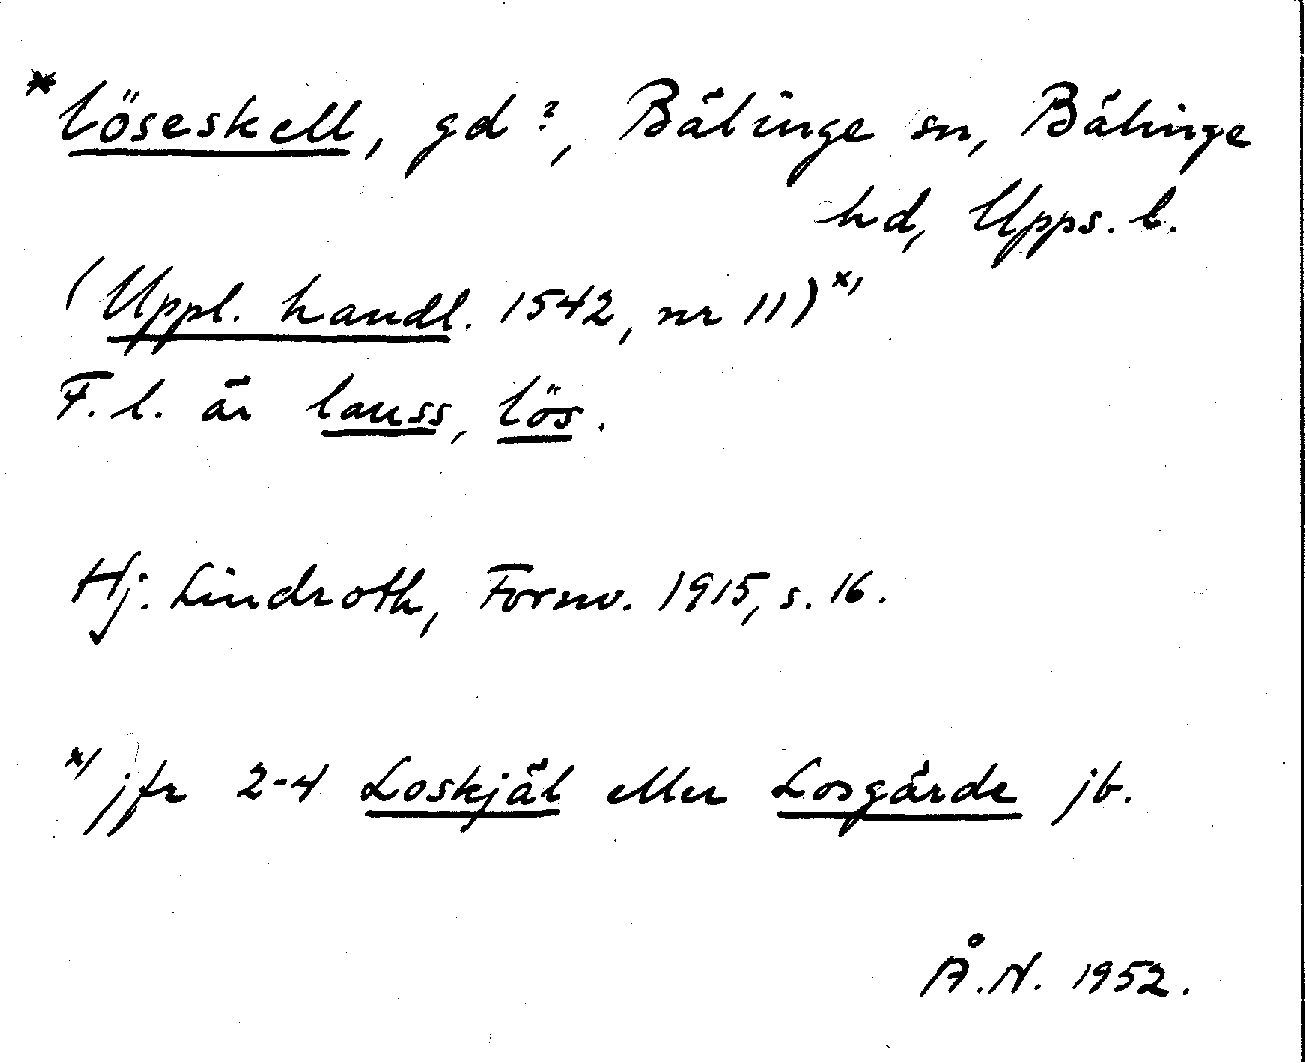 *löseskell, gd?, Bälinge sn, Bälinge
hd, Upps. l.
(Uppl. handl. 1542, nr 11)x)
F.l. är lauss, lös.
Hj. Lindroth, Fornv. 1915, s. 16.
x) jfr 2-4 Loskjäl eller Losgärde jb.
Å.N. 1952.